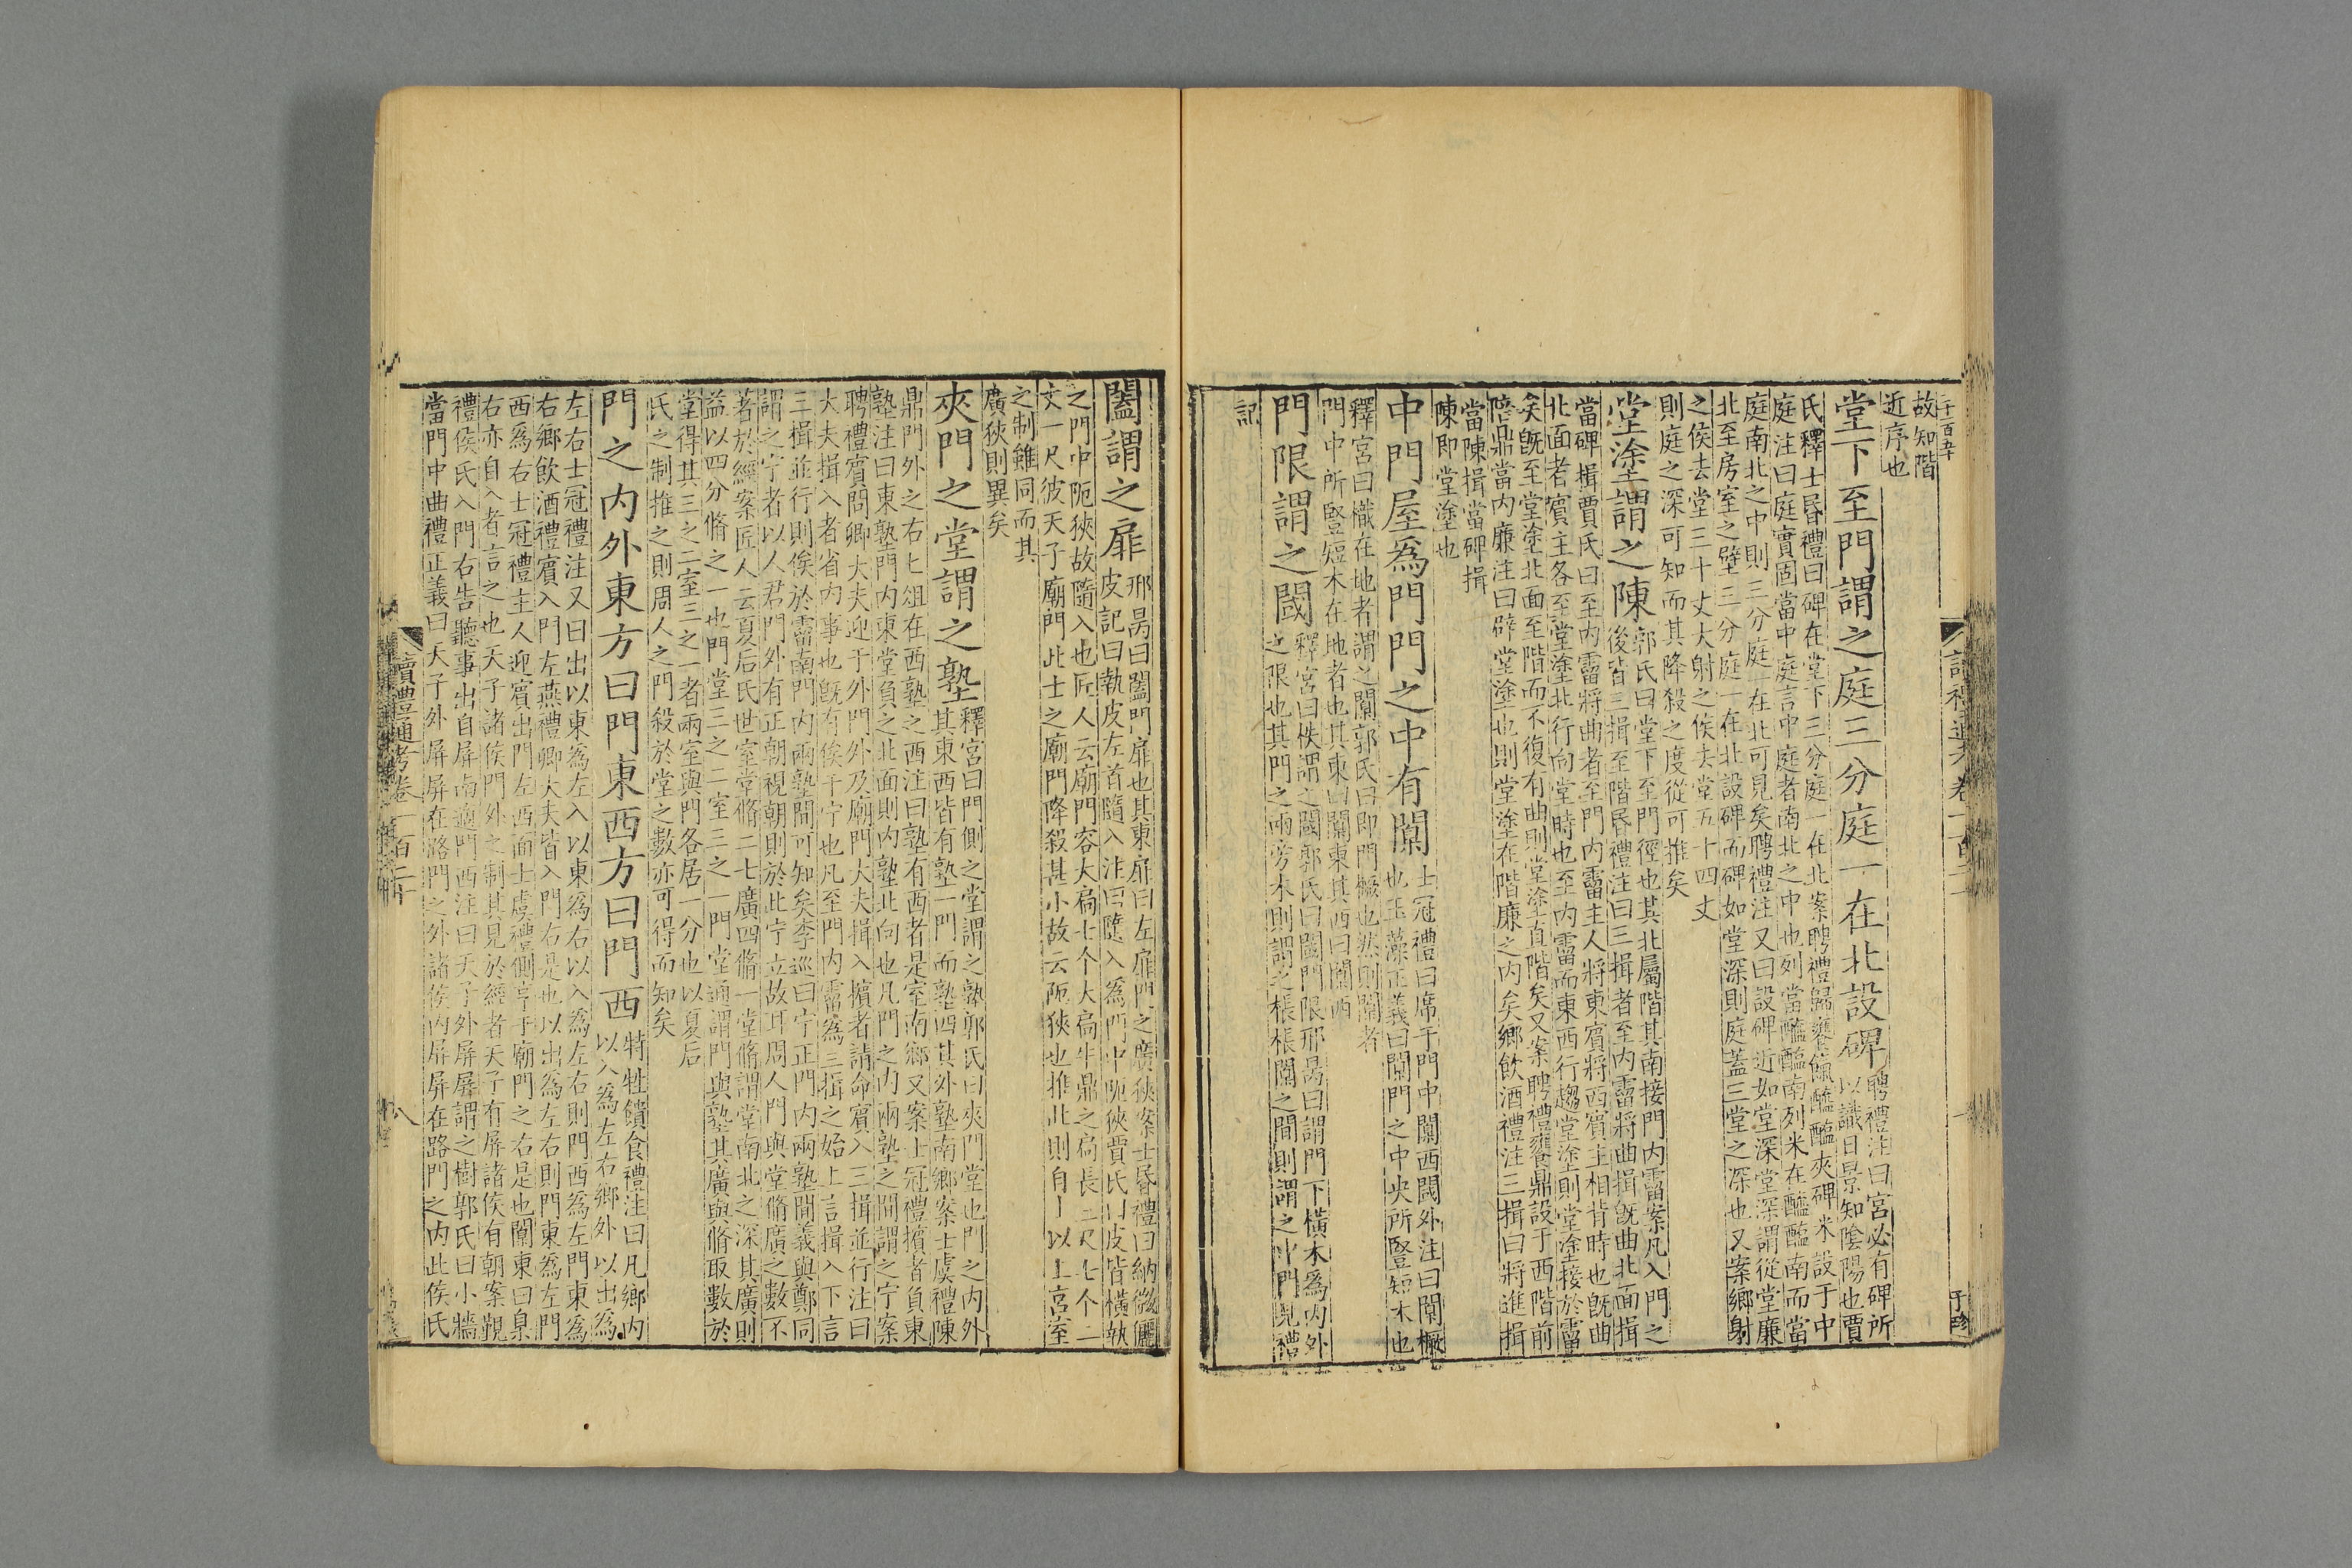 故知階
近序也
堂下至門謂之庭三分庭一在北設碑聘禮注曰宮必有碑所
以識日景知陰陽也賈
氏釋士昏禮曰碑在堂下三分庭一在北案聘禮歸饔餼醯醢夾碑米設于中
庭注曰庭實固當中庭言中庭者南北之中也列當醯醢南列米在醯醢南而當
庭南北之中則三分庭一在北可見矣聘禮注又曰設碑近如堂深堂深謂從堂廉
北至房室之壁三分庭一在北設碑而碑如堂深則庭蓋三堂之深也又案鄉射
之侯去堂三十丈大射之侯去堂五十四丈
則庭之深可知而其降殺之度從可推矣
堂塗謂之陳郭氏曰堂下至門徑也其北屬階其南接門內霤案凡入門之
後皆三揖至階昏禮注曰三揖者至內霤將曲揖既曲北面揖
當碑揖賈氏曰至內霤將曲者至門內霤主人將東賓將西賓主相背時也既曲
北面者賓主各至堂塗北行向堂時也至內霤而東西行趨堂塗則堂塗接於霤
矣既至堂塗北面至階而不復有曲則堂塗直階矣又案聘禮饔鼎設于西階前
陪鼎當內廉注曰辟堂塗也則堂塗在階廉之內矣鄉飲酒禮注三揖曰將進揖
當陳揖當碑揖
陳即堂塗也
中門屋爲門門之中有闑士冠禮曰席于門中闑西閾外注曰闑橛
也玉藻正義曰闑門之中央所豎短木也
釋宮曰樴在地者謂之闑郭氏曰即門橛也然則闑者
門中所豎短木在地者也其東曰闑東其西曰闑西
門限謂之閾釋宮曰柣謂之閾郭氏曰閾門限邢昺曰謂門下橫木爲內外
之限也其門之兩旁木則謂之棖棖闑之間則謂之中門見禮
記
闔謂之扉邢昺曰闔門扉也其東扉曰左扉門之廣狹案士昏禮曰納徵儷
皮記曰執皮左首隨入注曰隨入爲門中阨狹賈氏曰皮皆橫執
之門中阨狹故隨入也匠人云廟門容大扃七个大扃牛鼎之扃長三尺七个二
丈一尺彼天子廟門此士之廟門降殺甚小故云阨狹也推此則自士以上宮室
之制雖同而其
廣狹則異矣
夾門之堂謂之塾釋宮曰門側之堂謂之塾郭氏曰夾門堂也門之內外
其東西皆有塾一門而塾四其外塾南鄉案士虞禮陳
鼎門外之右匕俎在西塾之西注曰塾有西者是室南鄉又案士冠禮擯者負東
塾注曰東塾門內東堂負之北面則內塾北向也凡門之內兩塾之間謂之宁案
聘禮賓問卿大夫迎于外門外及廟門大夫揖入擯者請命賓入三揖並行注曰
大夫揖入者省內事也既有俟于宁也凡至門內霤爲三揖之始上言揖入下言
三揖並行則俟於霤南門內兩塾間可知矣李巡曰宁正門內兩塾間義與鄭同
謂之宁者以人君門外有正朝視朝則於此宁立故耳周人門與堂脩廣之數不
著於經案匠人云夏后氏世室堂脩二七廣四脩一堂脩謂堂南北之深其廣則
益以四分脩之一也門堂三之二室三之一門堂通謂門與塾其廣與脩取數於
堂得其三之二室三之一者兩室與門各居一分也以夏后
氏之制推之則周人之門殺於堂之數亦可得而知矣
門之內外東方曰門東西方曰門西特牲饋食禮注曰凡鄉內
以入爲左右鄉外以出爲
左右士冠禮注又曰出以東爲左入以東爲右以入爲左右則門西爲左門東爲
右鄉飲酒禮賓入門左燕禮卿大夫皆入門右是也以出爲左右則門東爲左門
西爲右士冠禮主人迎賓出門左西面士虞禮側亨于廟門之右是也闑東曰臬
右亦自入者言之也天子諸侯門外之制其見於經者天子有屏諸侯有朝案覲
禮侯氏入門右告聽事出自屏南適門西注曰天子外屏屏謂之樹郭氏曰小牆
當門中曲禮正義曰天子外屏屏在路門之外諸侯內屏屏在路門之內此侯氏
讀禮通考卷一百二十
八